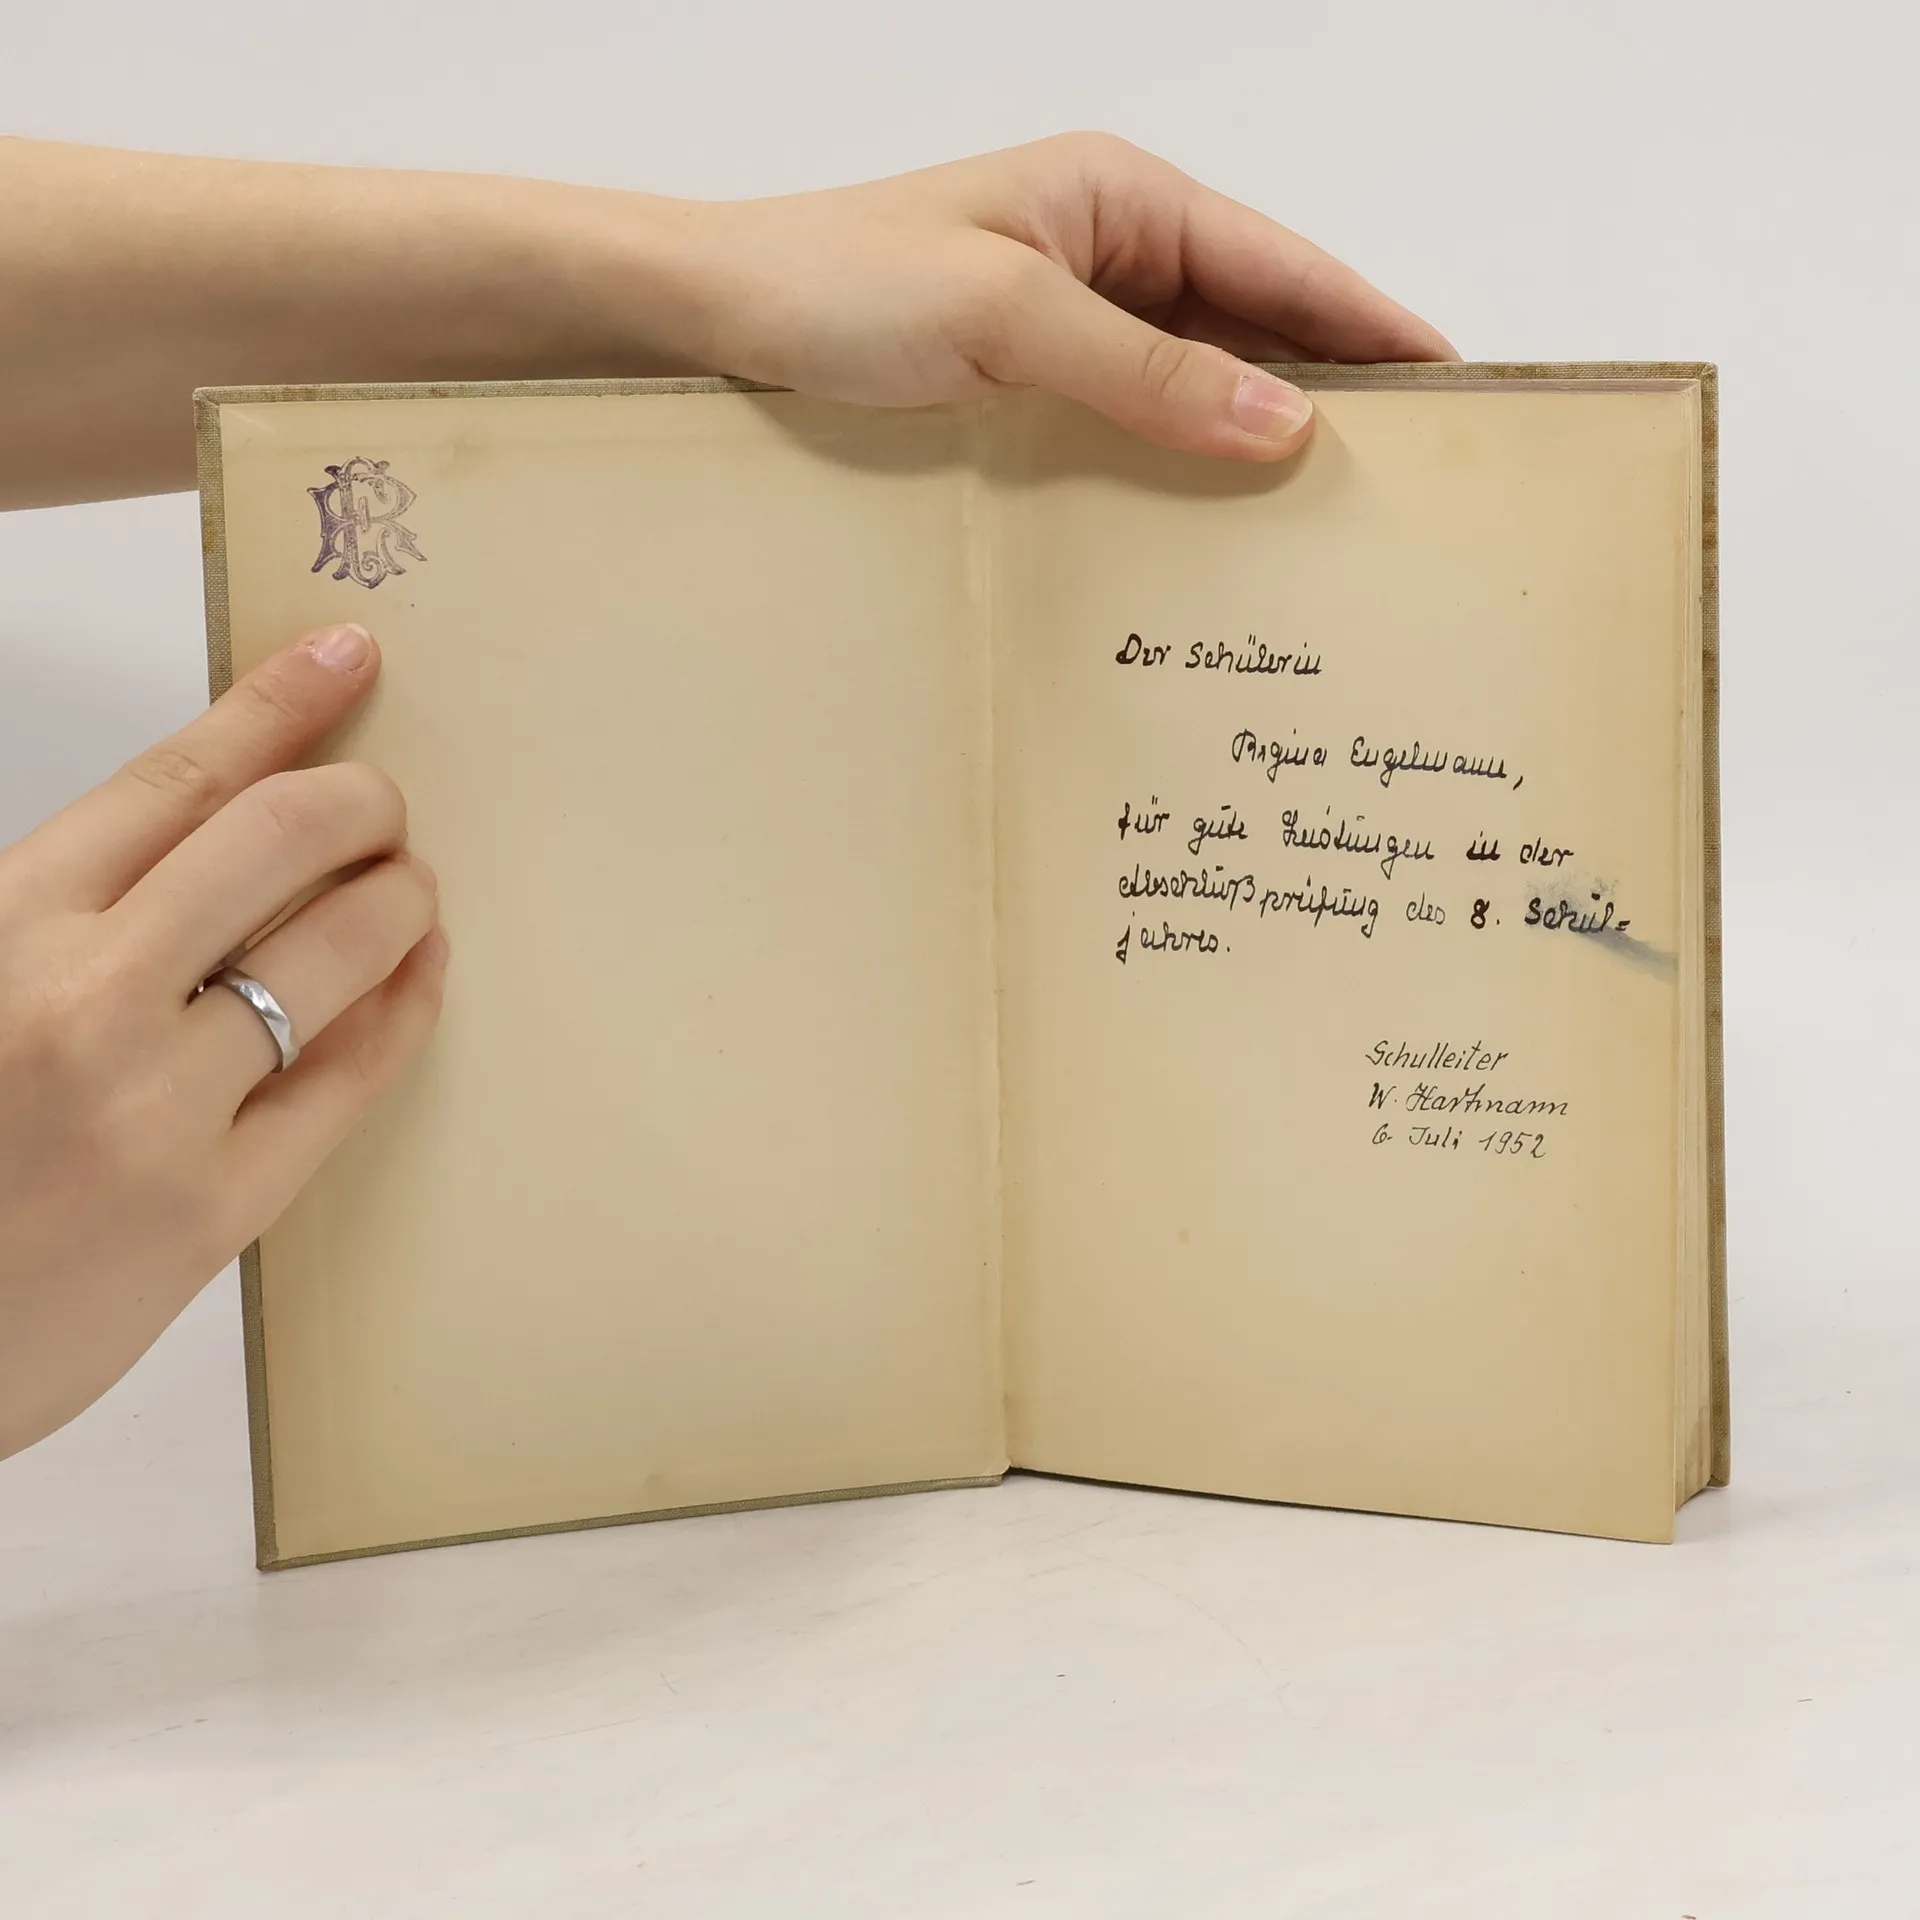 ER
Der Schülerin
Regina Engelmann,
für gute Leistungen in der
Abschlußprüfung des 8. Schul=
jahres.
Schulleiter
W. Hartmann
6. Juli 1952